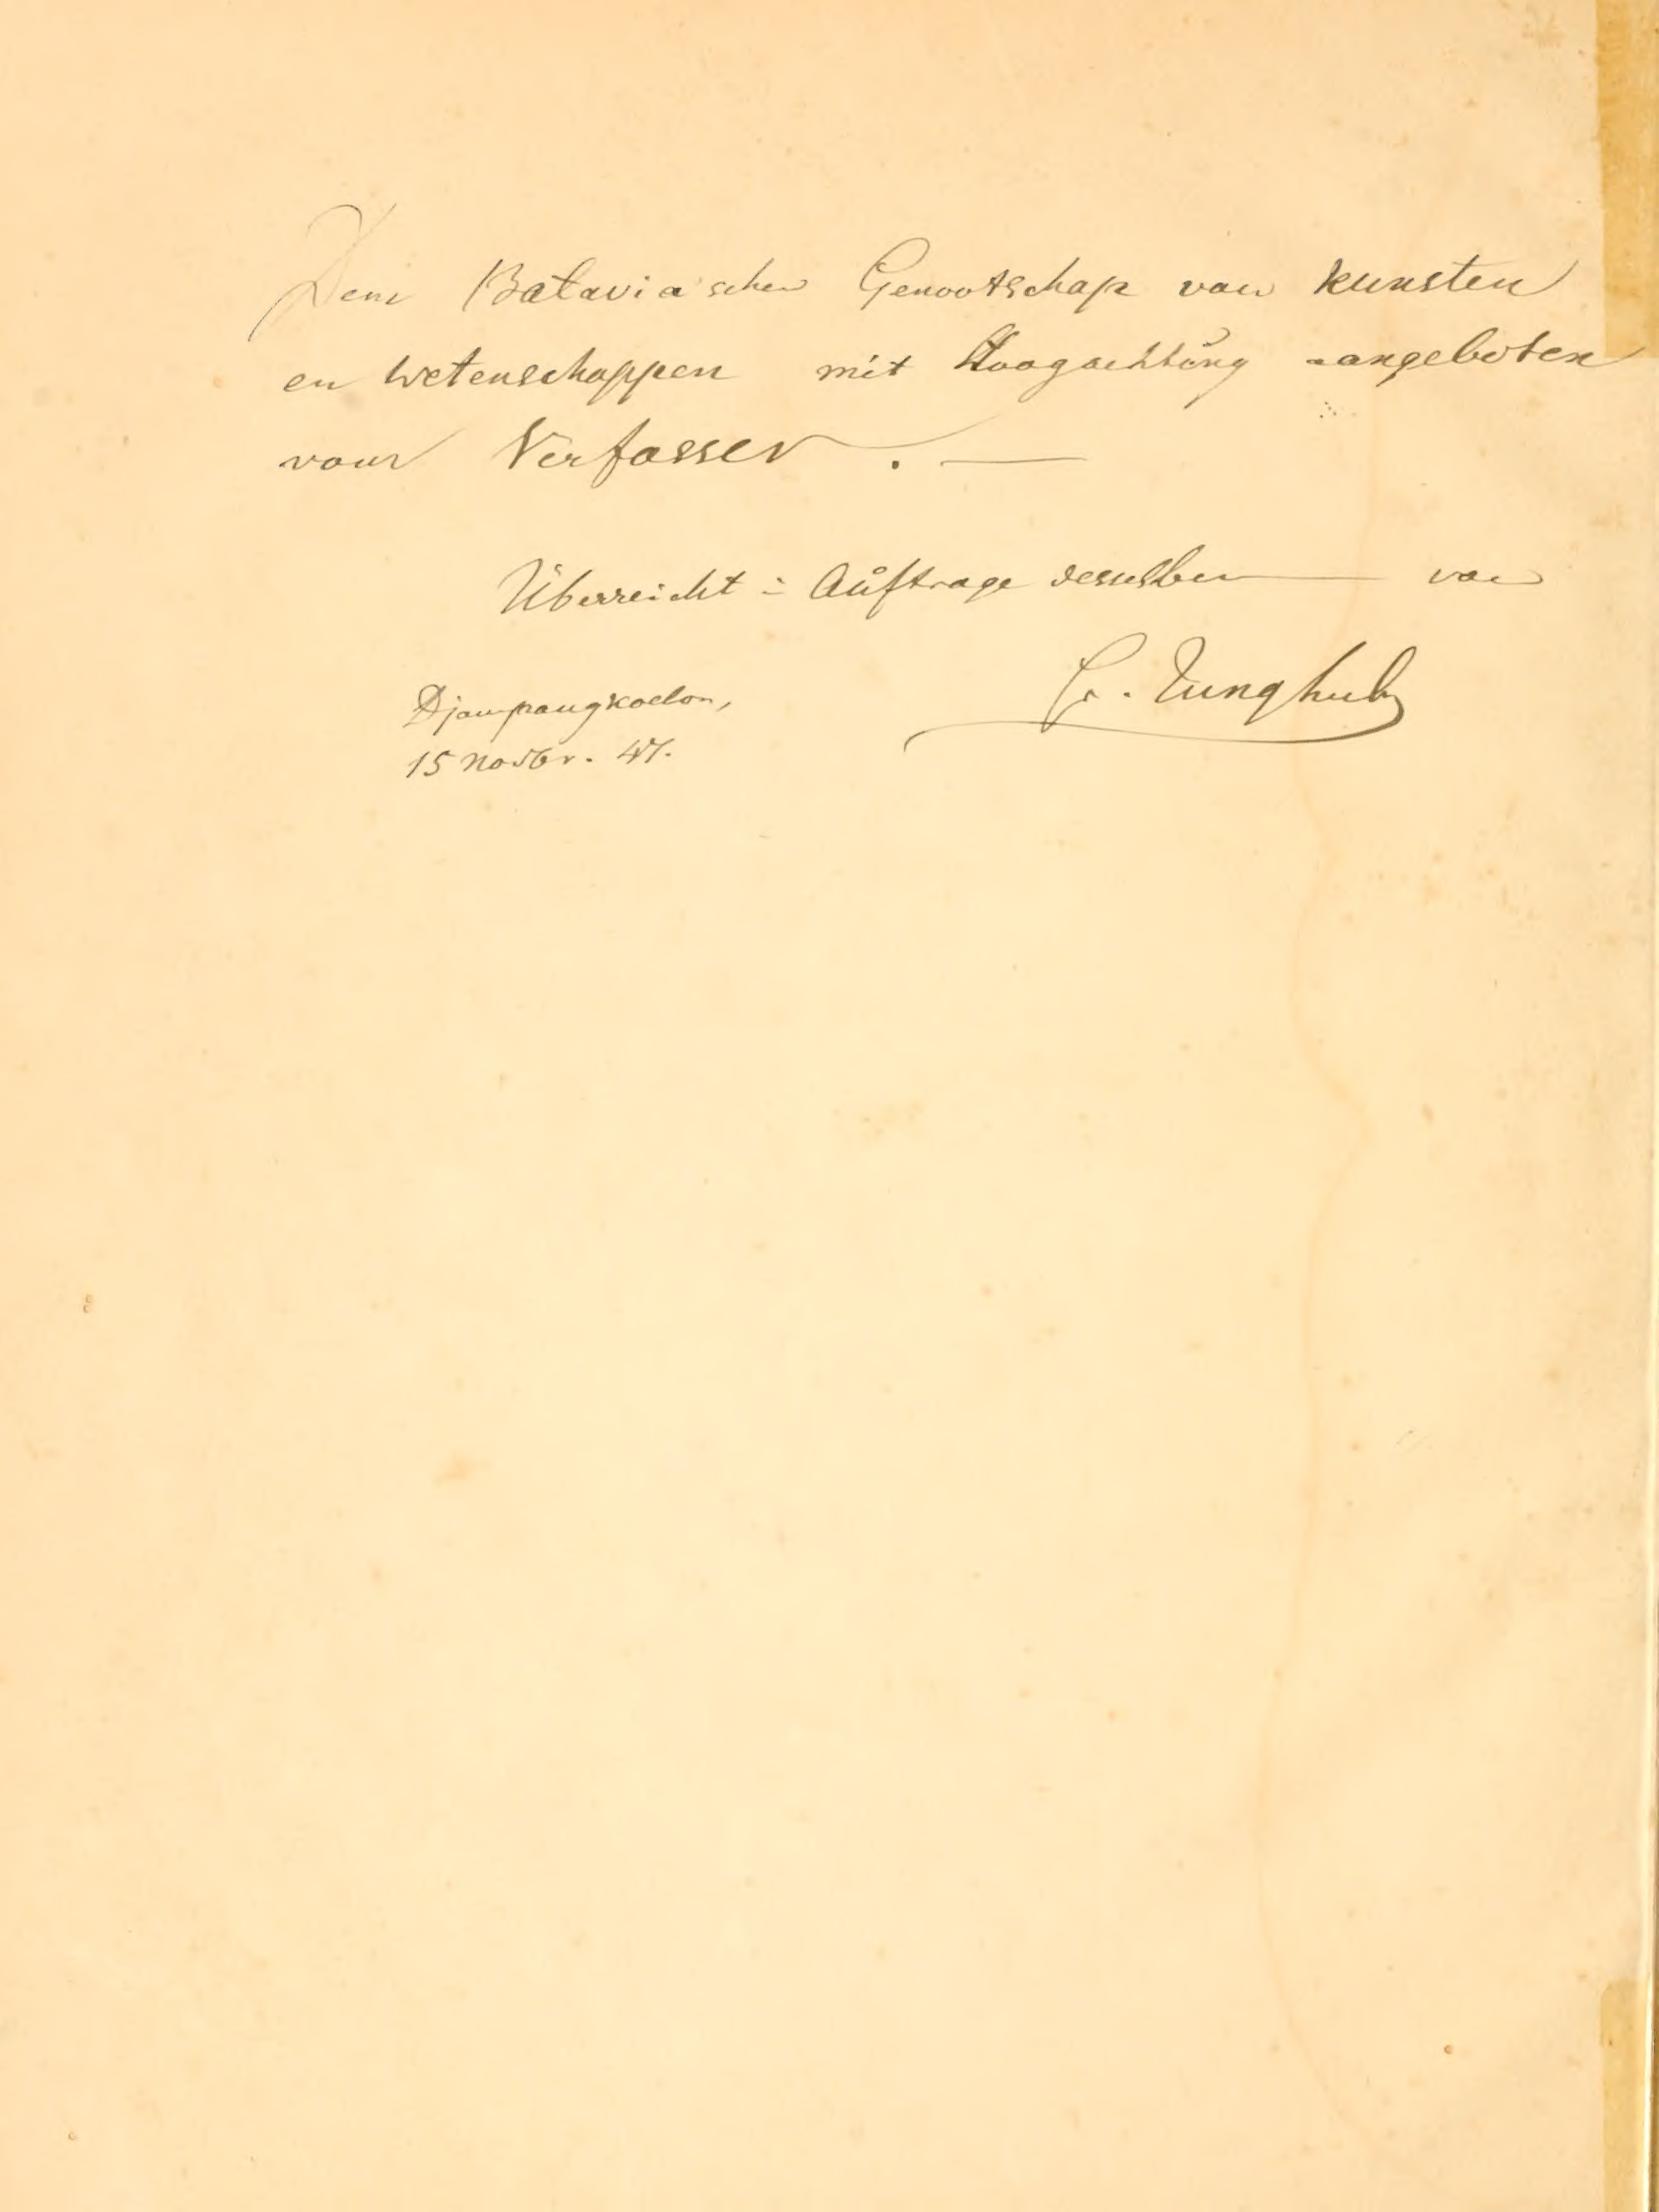 Dem Batavia'schen Genootschap van Kunsten
en Wetenschappen mit Hoogachtung aangeboten
vom Verfasser. —
Überreicht i: Auftrage desselben — von
Fr. Junghuhn
Djampangkoelon,
15 Novbr. 47.